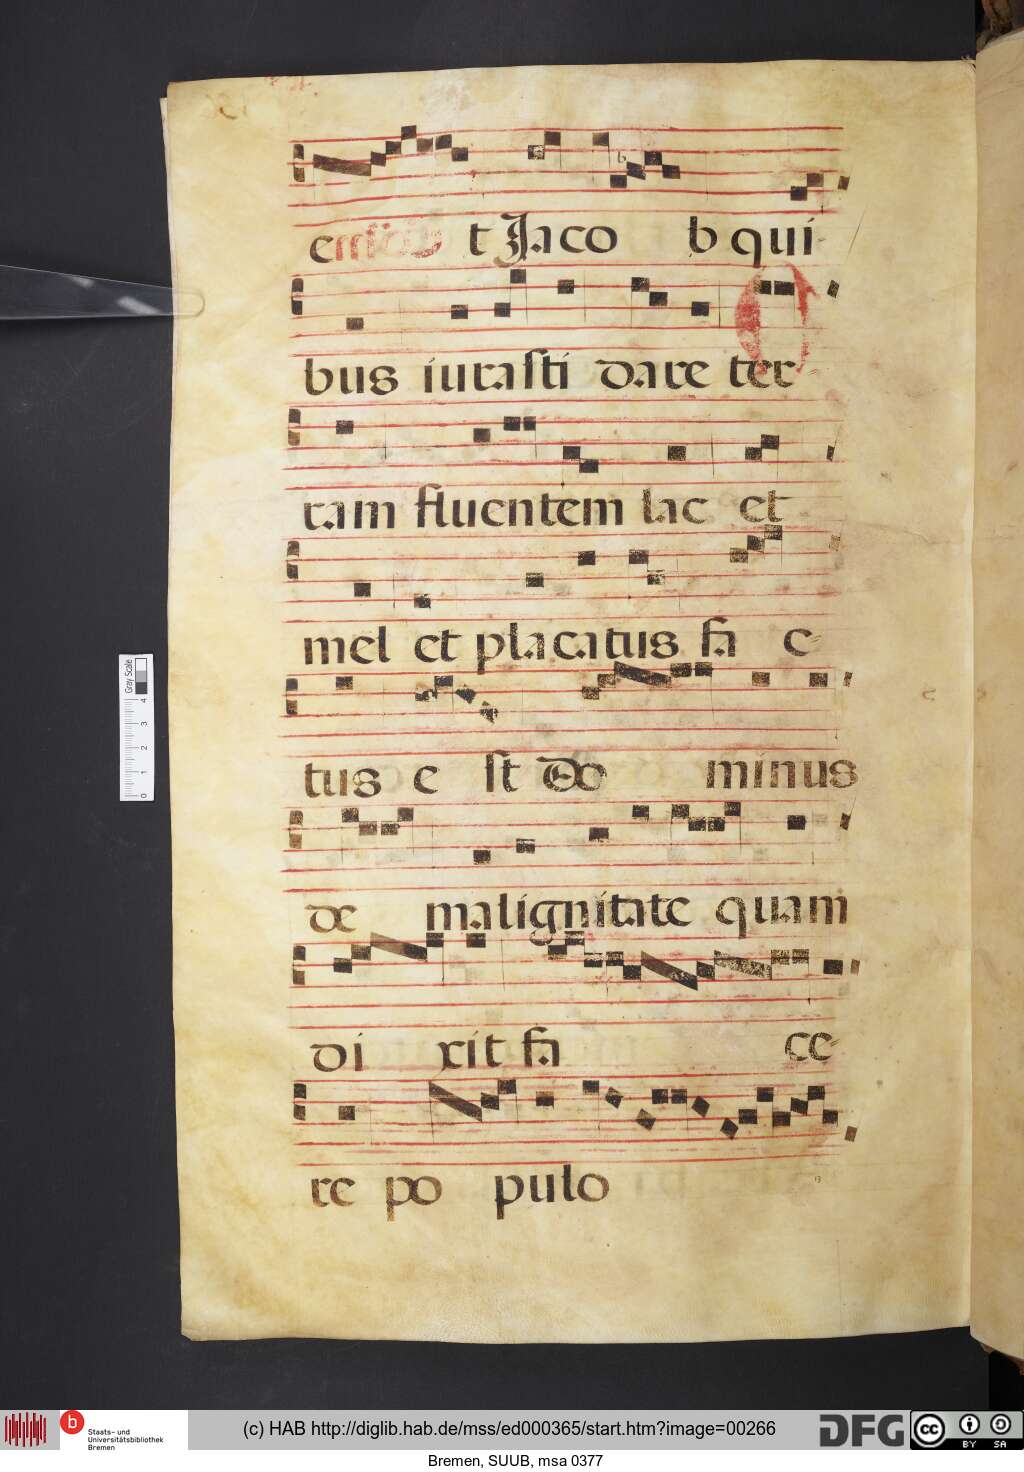 e t Jaco b qui
bus iurasti dare ter
ram fluentem lac et
mel et placatus fa c-
tus e st Do minus
de malignitate quam
di xit fa ce-
re po pulo
Gray Scale
0 1 2 3 4
b Staats- und Universitätsbibliothek Bremen
(c) HAB http://diglib.hab.de/mss/ed000365/start.htm?image=00266
DFG
cc BY SA
Bremen, SUUB, msa 0377